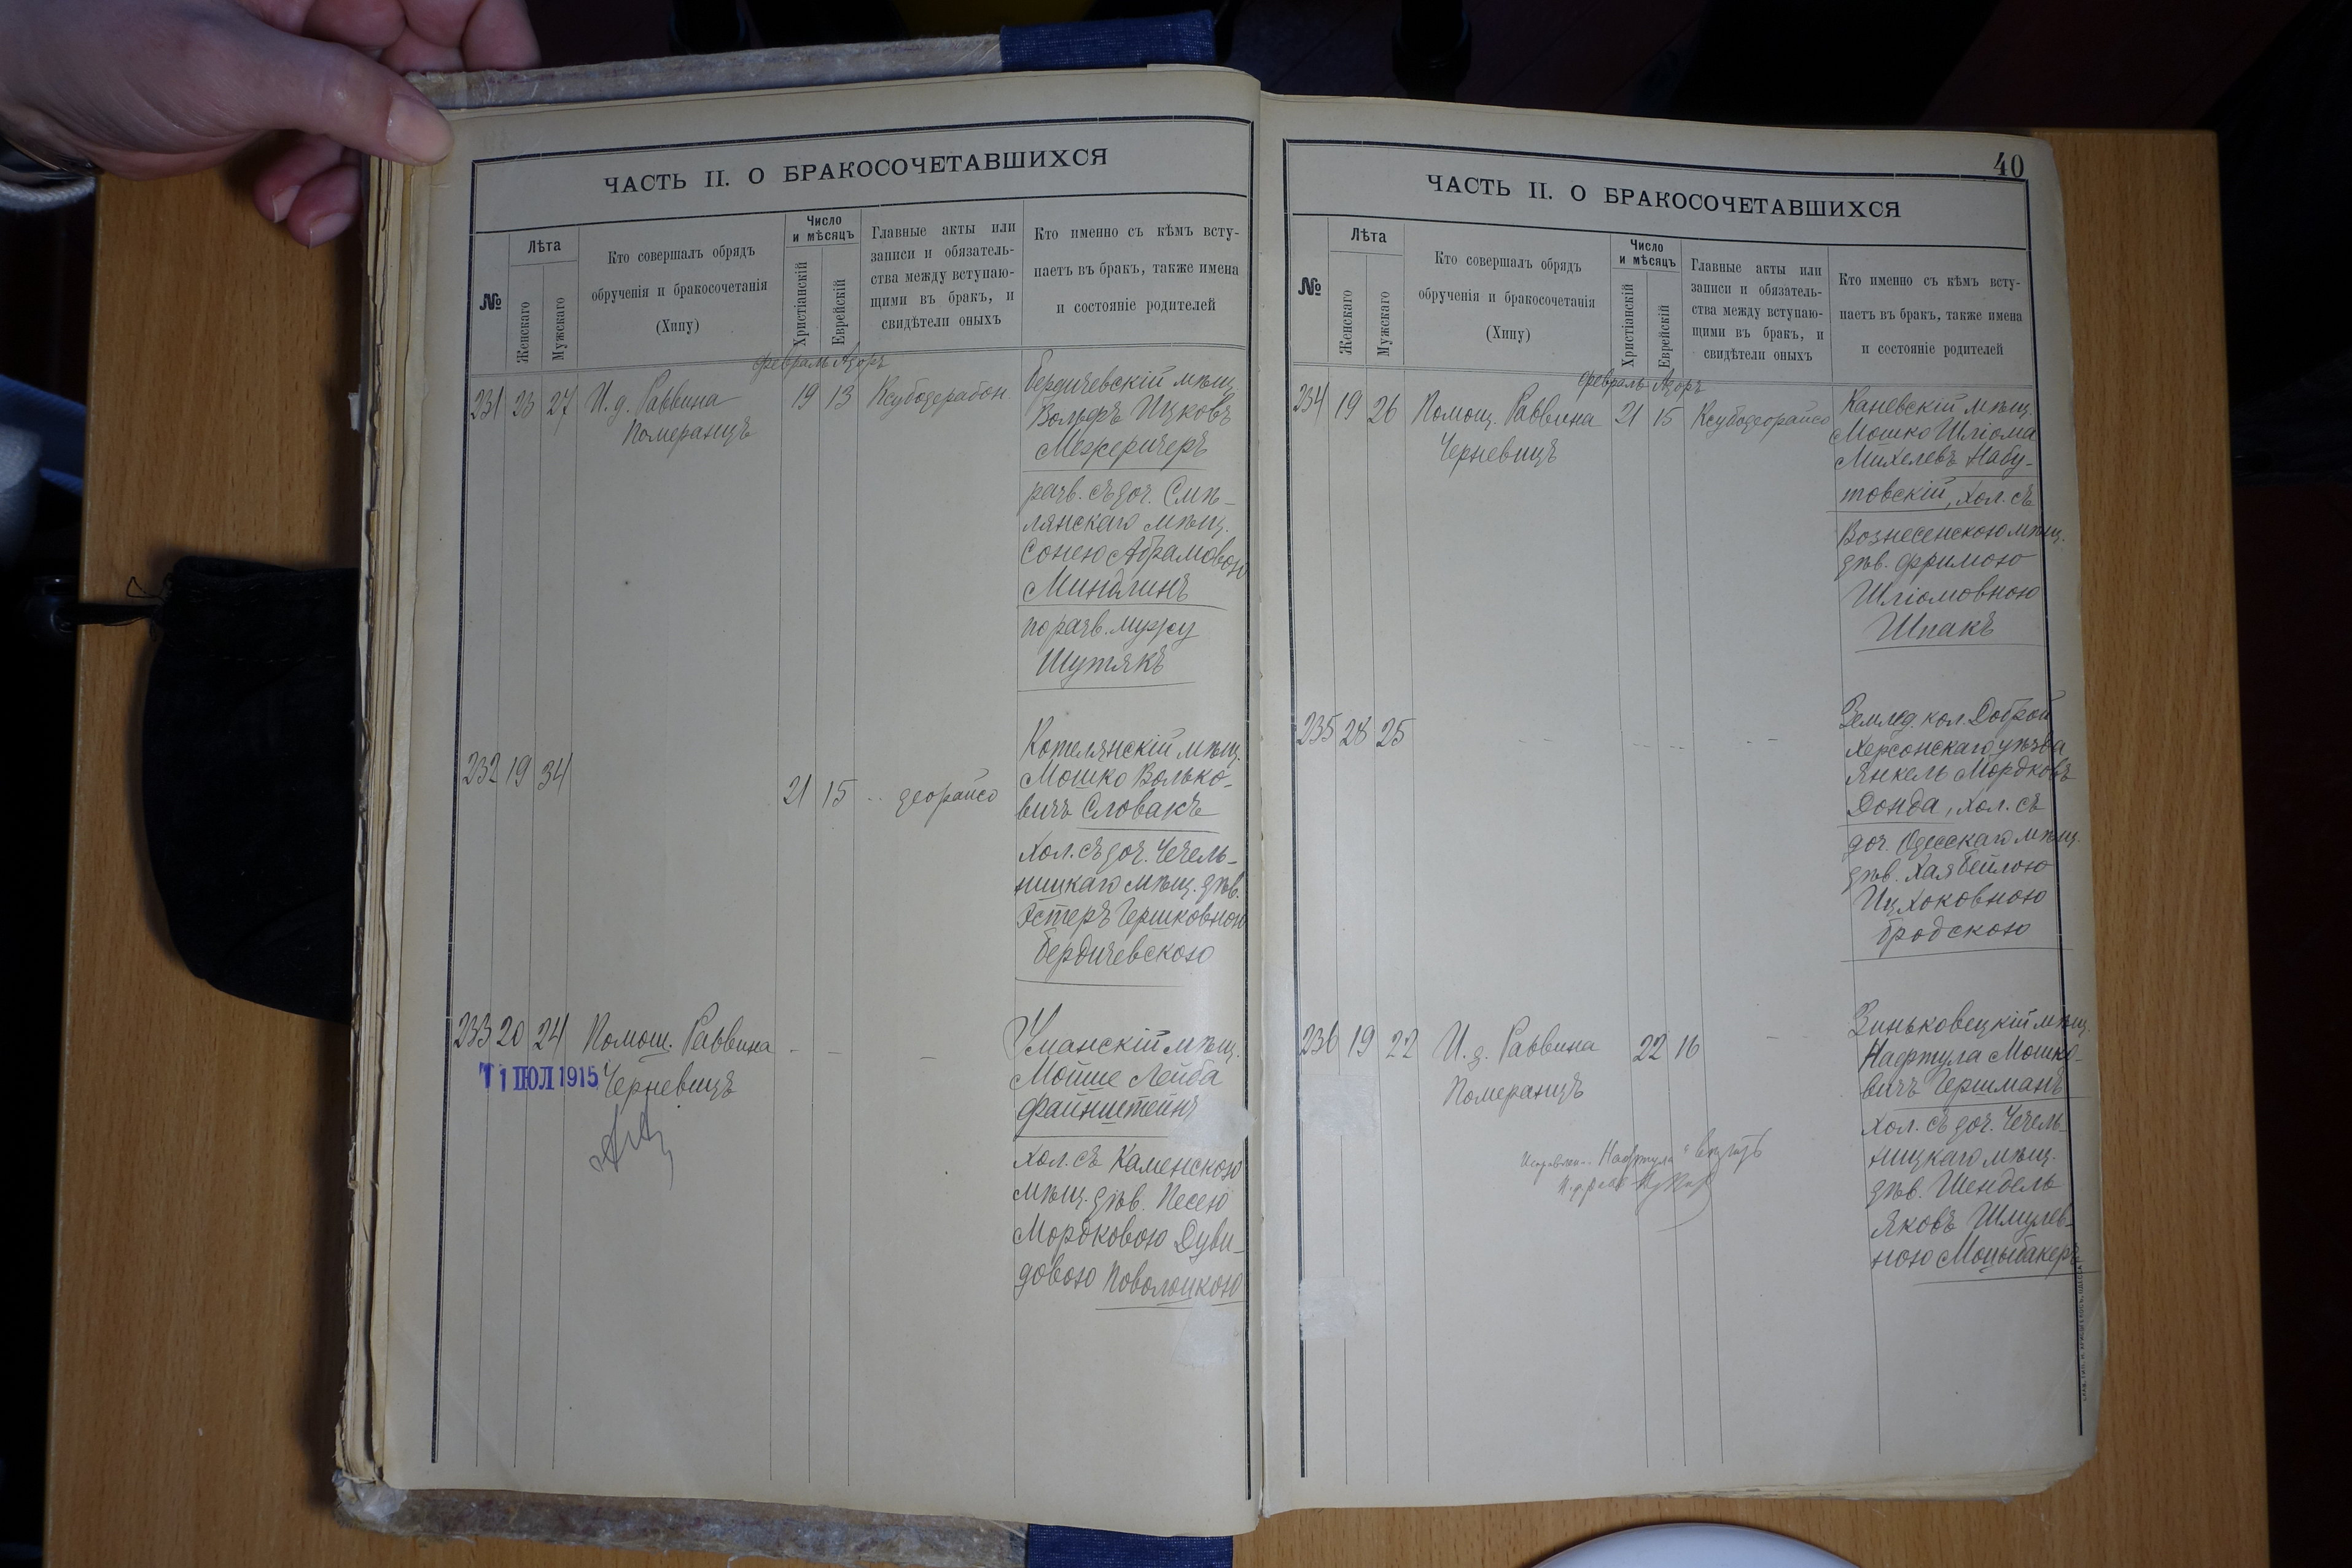 ЧАСТЬ II. О БРАКОСОЧЕТАВШИХСЯ
№
Лѣта
Женскаго
Мужскаго
Кто совершалъ обрядъ
обрученія и бракосочетанія
(Хипу)
Число
и мѣсяцъ
Христіанскій
Еврейскій
Главные акты или
записи и обязатель-
ства между вступаю-
щими въ бракъ, и
свидѣтели оныхъ
Кто именно съ кѣмъ всту-
паетъ въ бракъ, также имена
и состояніе родителей
февраль Адоръ
231 23 27 И. д. Раввина 19 13 Ксубодерабон
Померанцъ
Бердичевскій мѣщ.
Вольфъ Ицковъ
Межеричеръ
разв. съ доч. Смѣ-
лянскаго мѣщ.
Сонею Абрамовою
Миндлинъ
по разв. мужу
Шутякъ
232 19 34 21 15 " деорайсо
Котелянскій мѣщ.
Мошко Волько-
вичъ Словакъ
хол. съ доч. Чечель-
ницкаго мѣщ. дѣв.
Эстеръ Гершковною
Бердичевскою
233 20 24 Помощ. Раввина - - -
Черневицъ
11 ІЮЛ 1915
Уманскій мѣщ.
Мойше Лейба
Файнштейнъ
хол. съ Каменскою
мѣщ. дѣв. Песею
Мордковою Дуви-
довою Поволоцкою
40
ЧАСТЬ II. О БРАКОСОЧЕТАВШИХСЯ
№
Лѣта
Женскаго
Мужскаго
Кто совершалъ обрядъ
обрученія и бракосочетанія
(Хипу)
Число
и мѣсяцъ
Христіанскій
Еврейскій
Главные акты или
записи и обязатель-
ства между вступаю-
щими въ бракъ, и
свидѣтели оныхъ
Кто именно съ кѣмъ всту-
паетъ въ бракъ, также имена
и состояніе родителей
февраль Адоръ
234 19 26 Помощ. Раввина 21 15 Ксубодеорайсо
Черневицъ
Каневскій мѣщ.
Мошко Шліома
Михелевъ Набу-
товскій, хол. съ
Вознесенскою мѣщ.
дѣв. Фримою
Шліомовною
Шпакъ
235 28 25 - - - - - -
Землед. кол. Доброй
Херсонскаго уѣзда
Янкель Мордковъ
Донда, хол. съ
доч. Одесскаго мѣщ.
дѣв. Хая Бейлою
Ицхоковною
Бродскою
236 19 22 И. д. Раввина 22 16 -
Померанцъ
Зиньковецкій мѣщ.
Нафтула Мошко-
вичъ Гершманъ
хол. съ доч. Чечель-
ницкаго мѣщ.
дѣв. Шендель
Яковъ Шмулев-
ною Моцыбакеръ
"Нафтула"